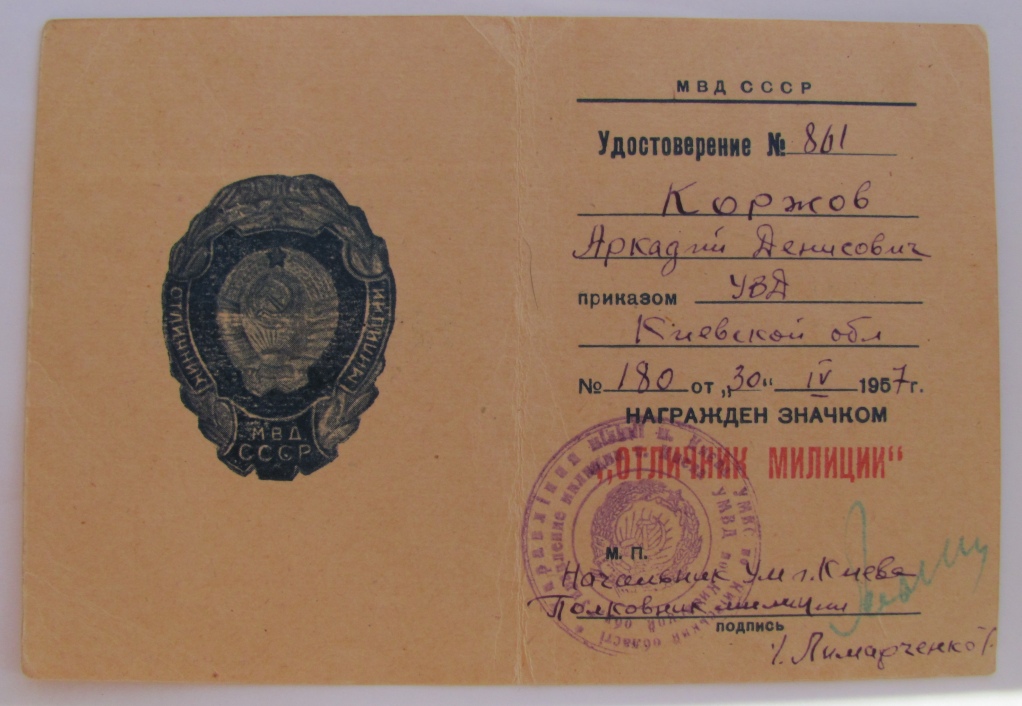 ОТЛИЧНИК
МИЛИЦИИ
МВД
СССР
МВД СССР
Удостоверение № 861
Коржов
Аркадий Денисович
приказом УВД
Киевской обл
№ 180 от „30“ IV 1957 г.
НАГРАЖДЕН ЗНАЧКОМ
„ОТЛИЧНИК МИЛИЦИИ“
М. П.
Начальник УМ г. Киева
Полковник милиции
подпись
/. Лимарченко/.